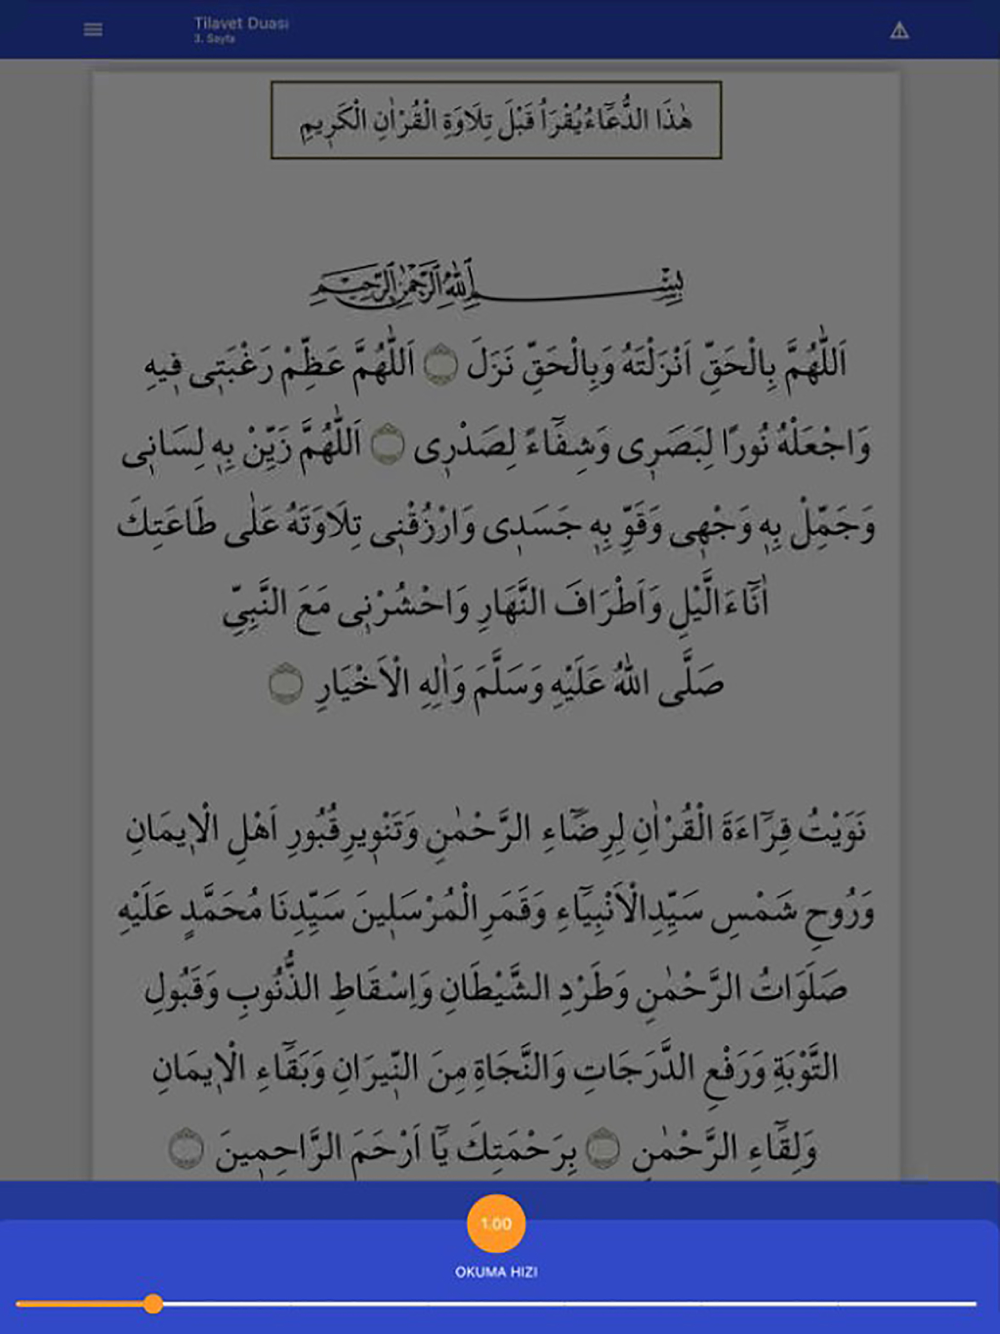 Tilavet Duası
3. Sayfa
هٰذَا الدُّعَٓاءُ يُقْرَاُ قَبْلَ تِلَاوَةِ الْقُرْاٰنِ الْكَرٖيمِ
بِسْمِ اللّٰهِ الرَّحْمٰنِ الرَّحٖيمِ
اَللّٰهُمَّ بِالْحَقِّ اَنْزَلْتَهُ وَبِالْحَقِّ نَزَلَ ۝ اَللّٰهُمَّ عَظِّمْ رَغْبَتٖى فٖيهِ
وَاجْعَلْهُ نُورًا لِبَصَرٖى وَشِفَٓاءً لِصَدْرٖى ۝ اَللّٰهُمَّ زَيِّنْ بِهٖ لِسَانٖى
وَجَمِّلْ بِهٖ وَجْهٖى وَقَوِّ بِهٖ جَسَدٖى وَارْزُقْنٖى تِلَاوَتَهُ عَلٰى طَاعَتِكَ
اٰنَٓاءَ الَّيْلِ وَاَطْرَافَ النَّهَارِ وَاحْشُرْنٖى مَعَ النَّبِىِّ
صَلَّى اللّٰهُ عَلَيْهِ وَسَلَّمَ وَاٰلِهِ الْاَخْيَارِ ۝
نَوَيْتُ قِرَٓاءَةَ الْقُرْاٰنِ لِرِضَٓاءِ الرَّحْمٰنِ وَتَنْوٖيرِ قُبُورِ اَهْلِ الْاٖيمَانِ
وَرُوحِ شَمْسِ سَيِّدِ الْاَنْبِيَٓاءِ وَقَمَرِ الْمُرْسَلٖينَ سَيِّدِنَا مُحَمَّدٍ عَلَيْهِ
صَلَوَاتُ الرَّحْمٰنِ وَطَرْدِ الشَّيْطَانِ وَاِسْقَاطِ الذُّنُوبِ وَقَبُولِ
التَّوْبَةِ وَرَفْعِ الدَّرَجَاتِ وَالنَّجَاةِ مِنَ النّٖيرَانِ وَبَقَٓاءِ الْاٖيمَانِ
وَلِقَٓاءِ الرَّحْمٰنِ ۝ بِرَحْمَتِكَ يَٓا اَرْحَمَ الرَّاحِمٖينَ ۝
1.00
OKUMA HIZI